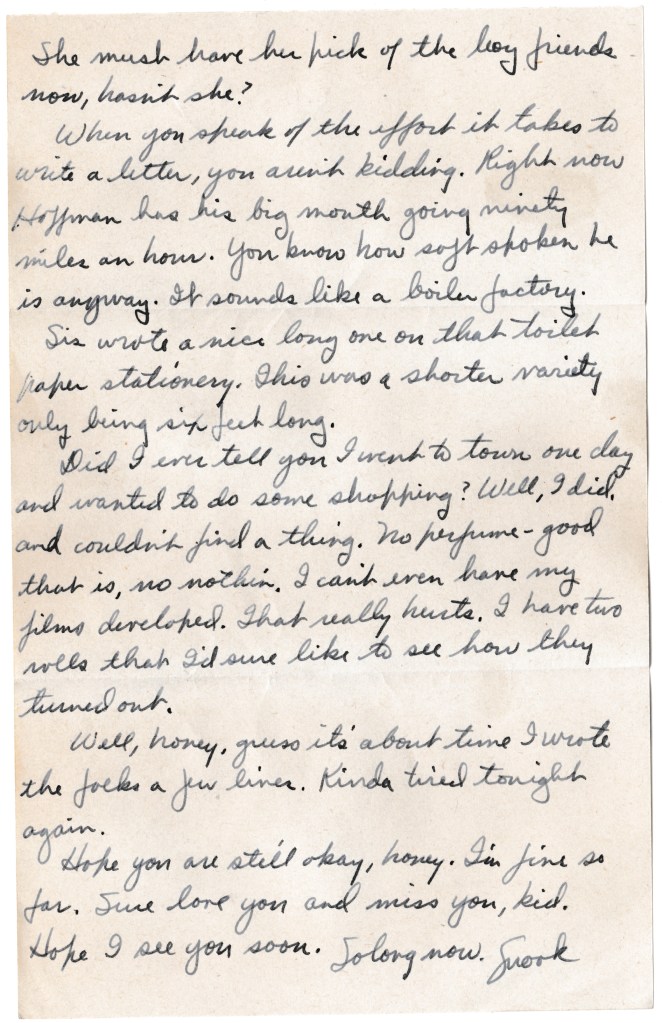 She must have her pick of the boy friends
now, hasn't she?
When you speak of the effort it takes to
write a letter, you aren't kidding. Right now
Hoffman has his big mouth going ninety
miles an hour. You know how soft spoken he
is anyway. It sounds like a boiler factory.
Sis wrote a nice long one on that toilet
paper stationery. This was a shorter variety
only being six feet long.
Did I ever tell you I went to town one day
and wanted to do some shopping? Well, I did,
and couldn't find a thing. No perfume - good
that is, no nothin. I can't even have my
films developed. That really hurts. I have two
rolls that I'd sure like to see how they
turned out.
Well, honey, guess it's about time I wrote
the folks a few lines. Kinda tired tonight
again.
Hope you are still okay, honey. I'm fine so
far. Sure love you and miss you, kid.
Hope I see you soon. So long now. Snook